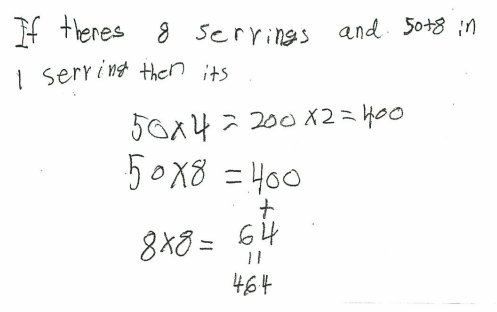 If theres 8 servings and 50+8 in
1 serving then its
50x4 = 200 x2 = 400
50x8 = 400
+
8x8 = 64
=
464